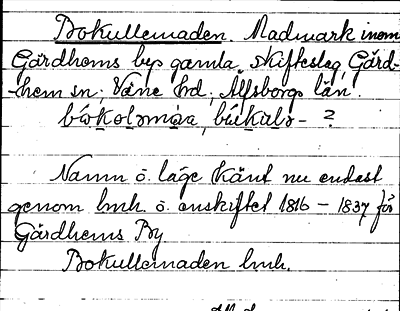 Bokullemaden. Madmark inom
Gärdhems bys gamla skifteslag, Gärd-
hem sn; Väne hd, Älfsborgs län.
Namn o. läge känt nu endast
genom lmh. o. enskiftet 1816 – 1837 för
Gärdhems By
Bokullemaden lmh.